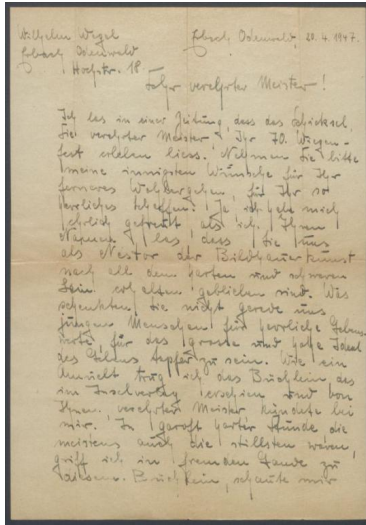 Wilhelm Wegel Erbach Odenwald, 20.4.1947.
Erbach Odenwald
Hochstr. 18
Sehr verehrter Meister!
Ich las in einer Zeitung, dass das Schicksal
Sie verehrter Meister Ihr 70. Wiegen-
fest erleben liess. Nehmen Sie bitte
meine innigsten Wünsche für Ihr
ferneres Wohlergehen, für Ihr so
herrliches Schaffen! Ja ich habe mich
ehrlich gefreut, als ich Ihren
Namen las, dass Sie uns
als Nestor der Bildhauerkunst
nach all dem harten und schweren
erhalten geblieben sind. Was
schenkten Sie nicht gerade uns
jungen Menschen für herrliche Lebens-
werte, für das grosse und hohe Ideal
des Lebens tapfer zu sein. Wie ein
trug ich das Büchlein, das
im Inselverlag erschien und von
Ihnen, verehrter Meister kündete bei
mir. In harter Stunde die
meistens auch die stillsten waren,
griff ich im fremden Lande zu
diesem Büchlein, schaute mir